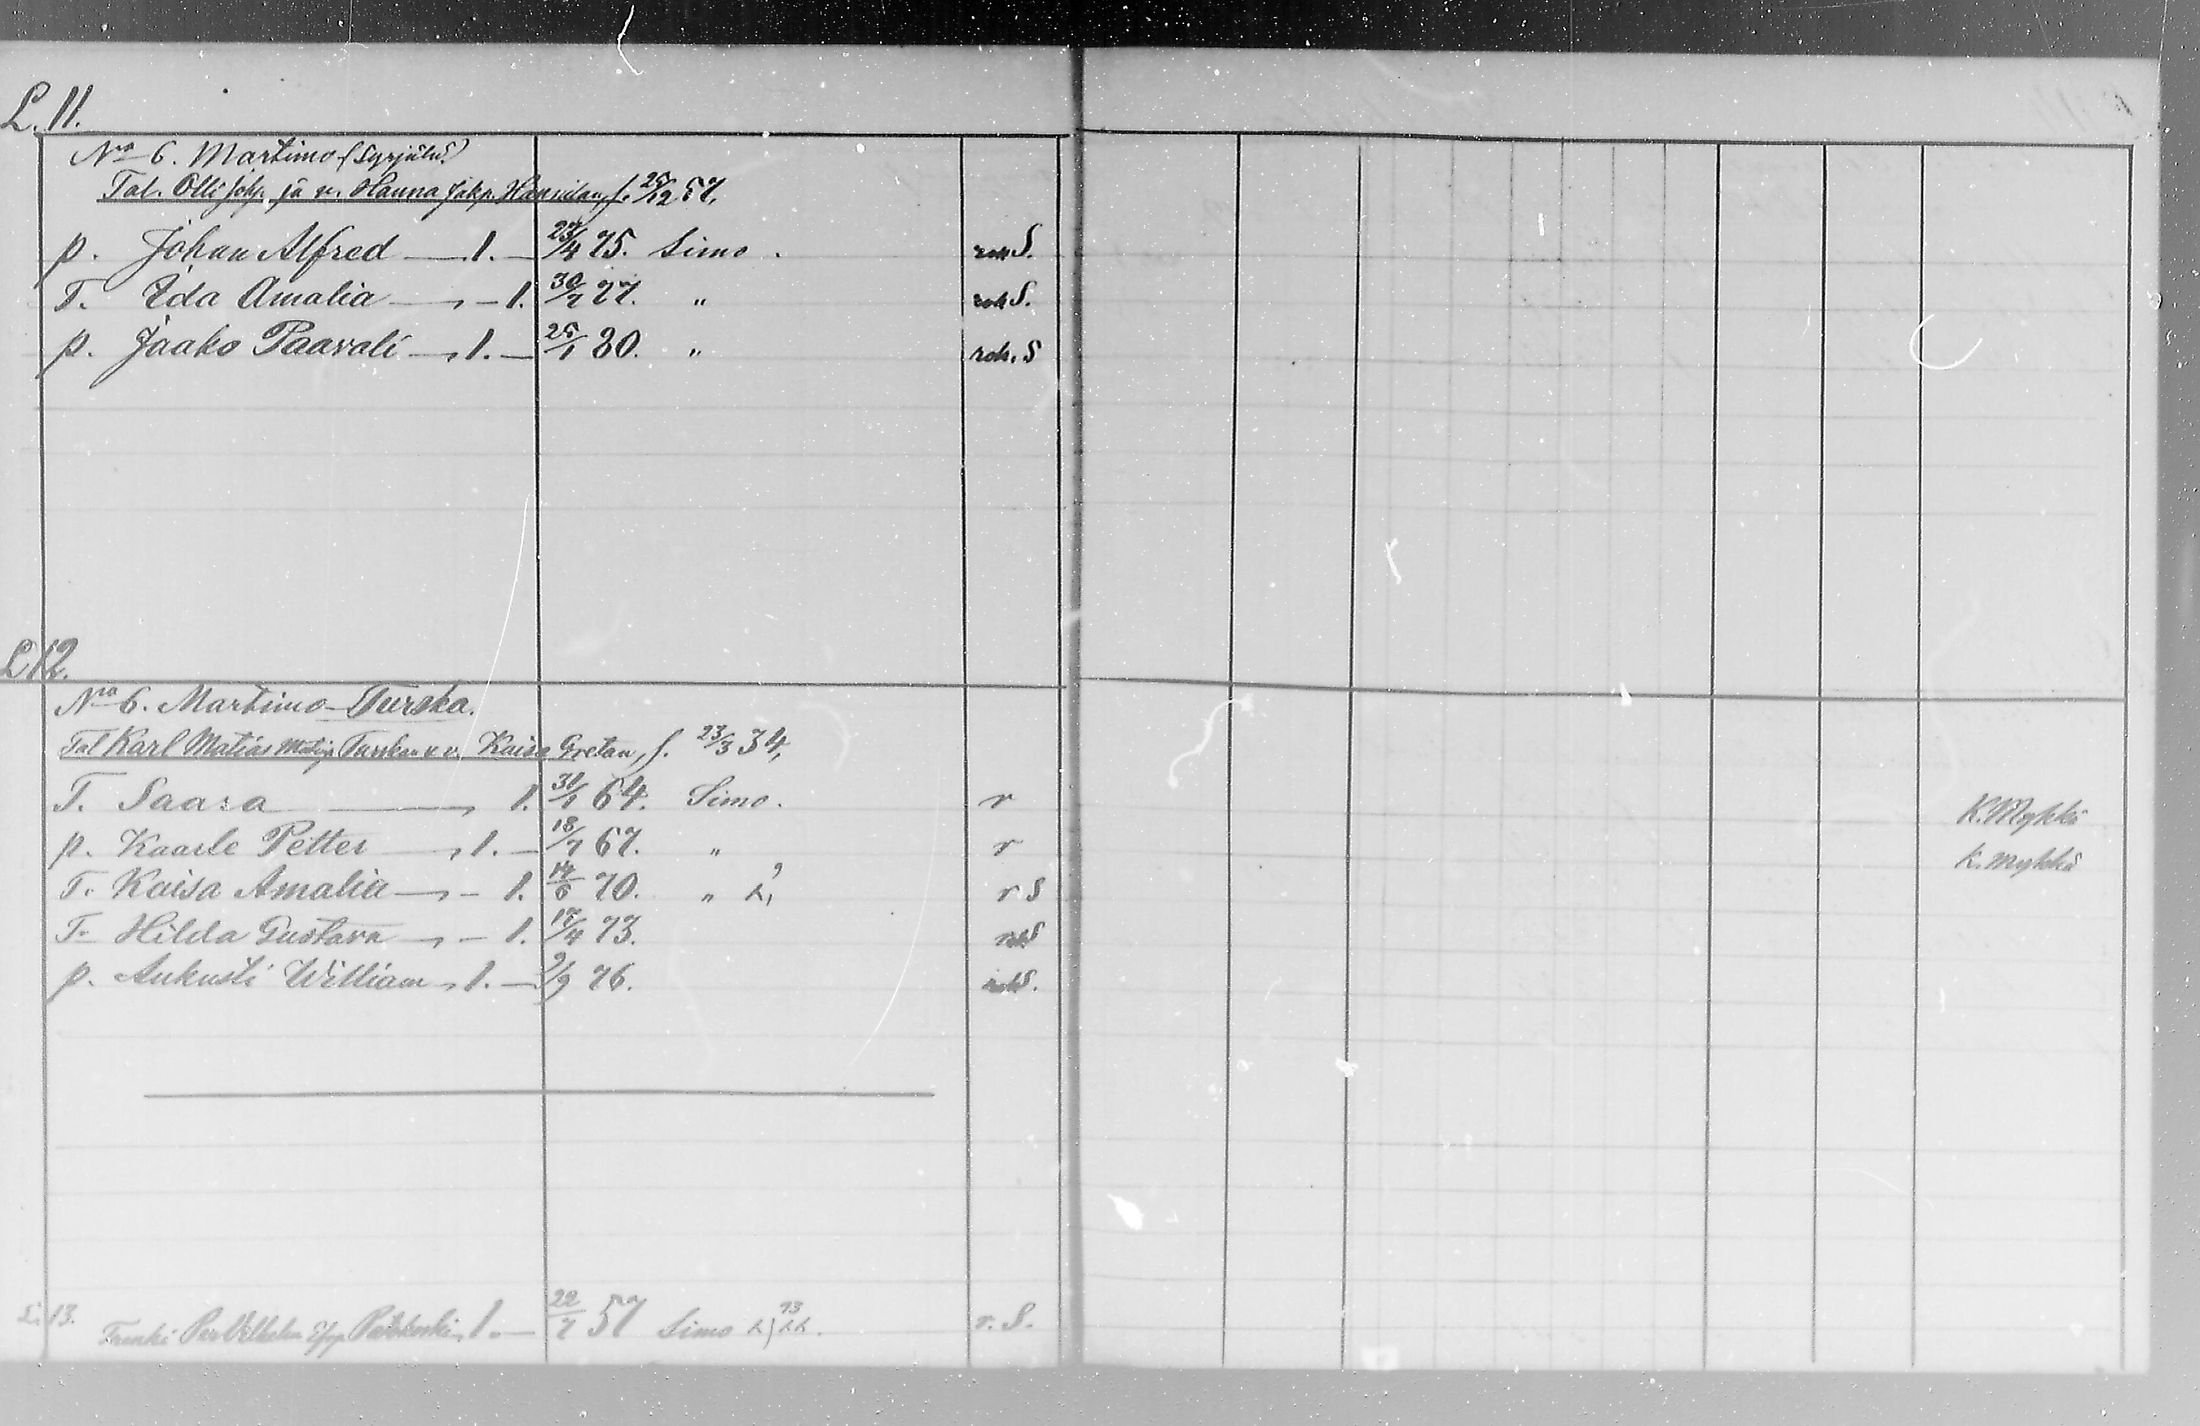 L. 11.
No 6. Martimo (Syrjälä)
Tal. Olli Johp. ja v. Hanna Jakp. f. 25/12 57.
p. Johan Alfred — 1. — 23/4 75. Simo. rok S.
T. Ida Amalia — 1. 30/7 77. " rok S.
p. Jaako Paavali — 1. — 25/1 80. " rok. S
L 12.
No 6. Martimo - Turska.
Tal Karl Matias Matip. Turskan v. v. Kaisa Gretan, f. 23/3 34,
T. Saara — 1. 31/1 64. Simo. r K. Mykkä
p. Kaarle Petter — 1. — 18/7 67. " r k. mykkä
T. Kaisa Amalia — 1. 14/6 70. " r S
T. Hilda Gustava — 1. 17/4 73. rok S
p. Aukusti William 1. — 9/9 76. rok S.
L. 13. Per Vilhelm 1. — 22/7 57 Simo r. S.